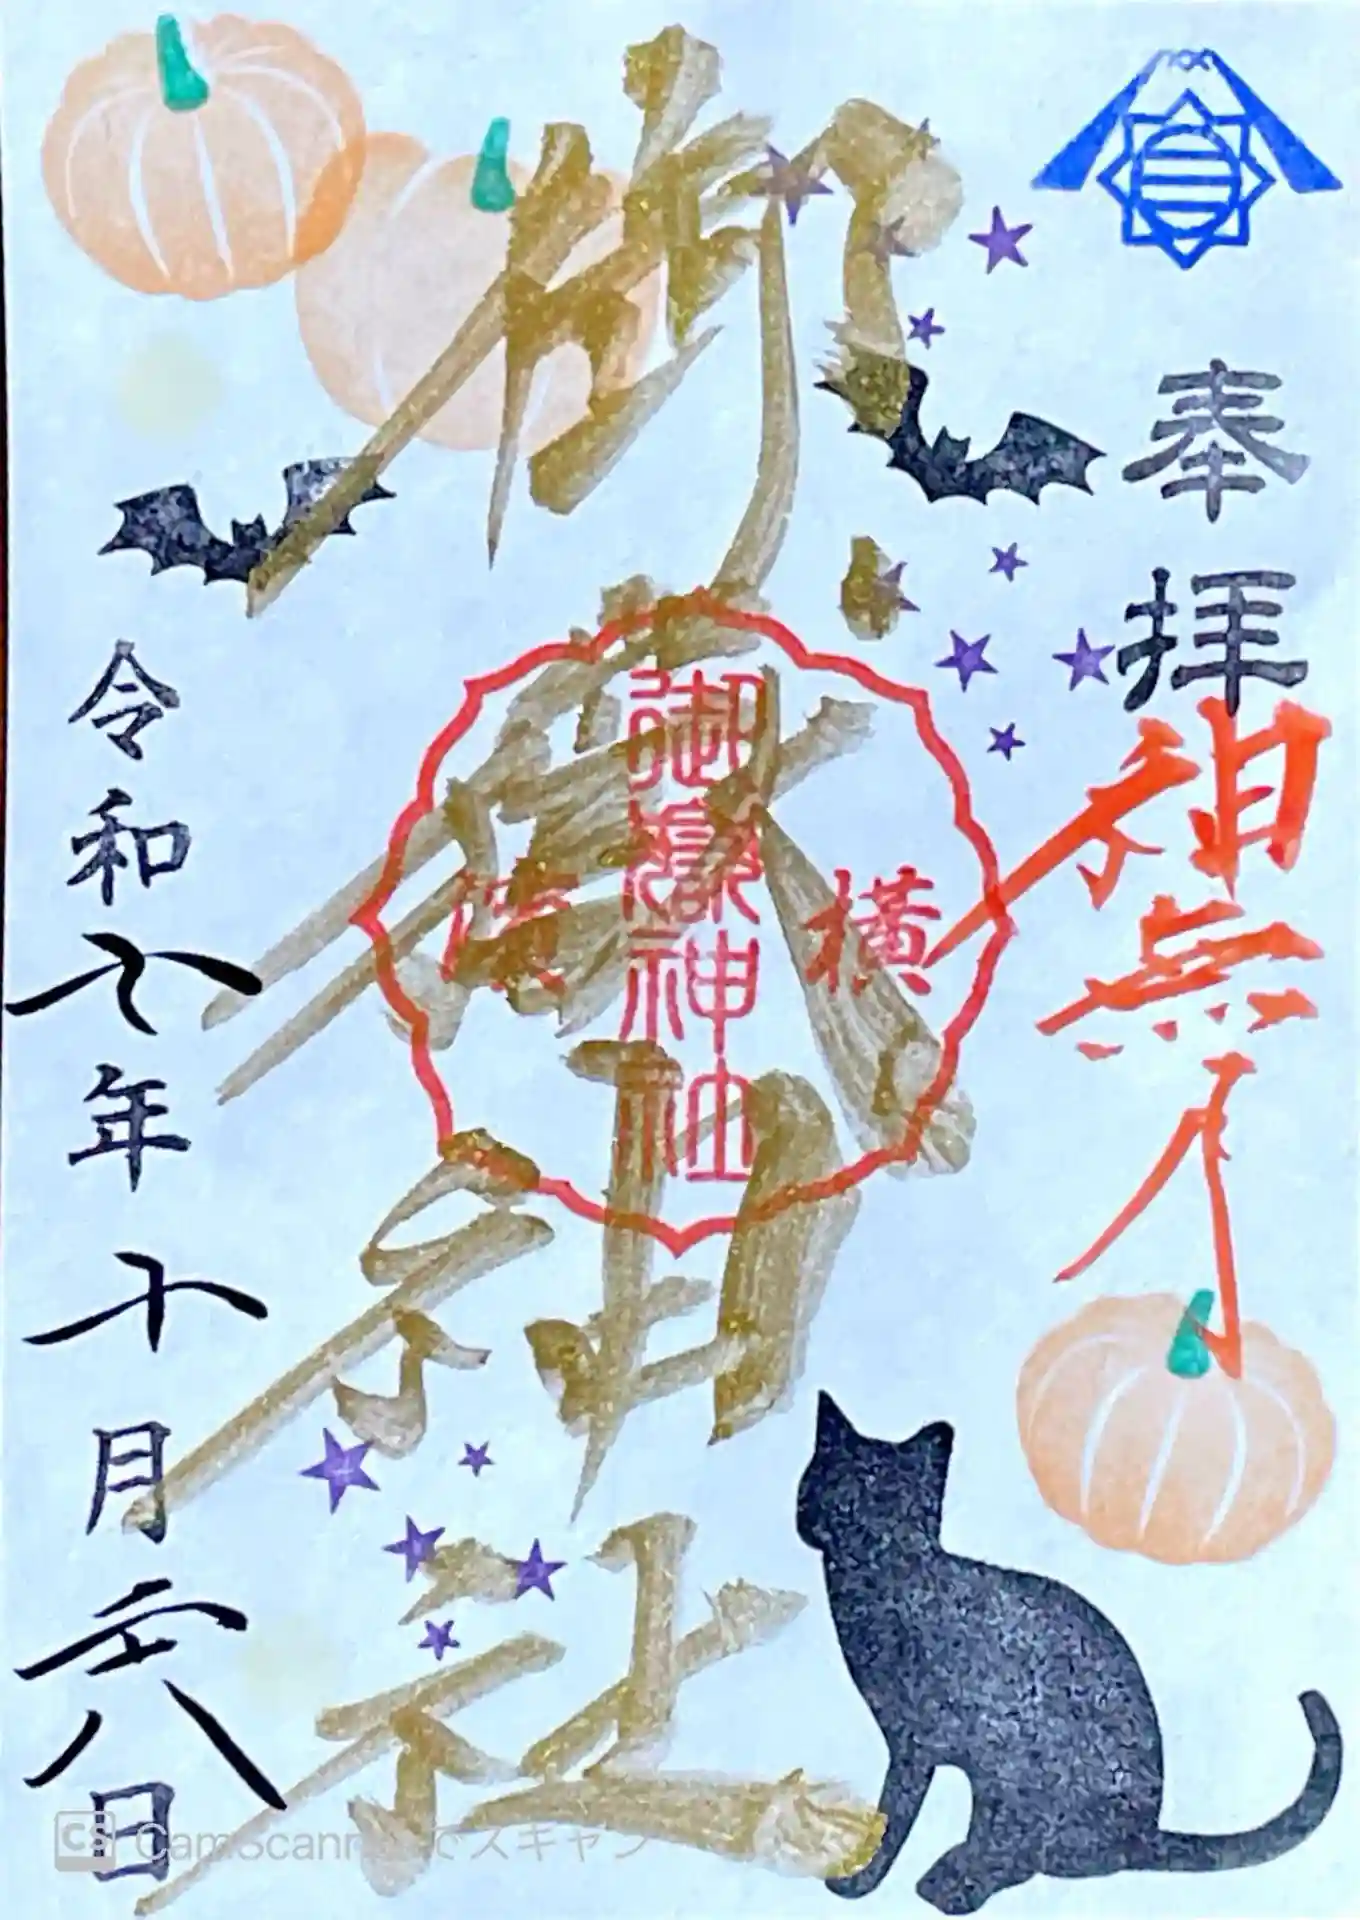 奉拝
神無月
御嶽神社
横濱
御嶽神社
令和六年十月二十八日
CamScannerでスキャン